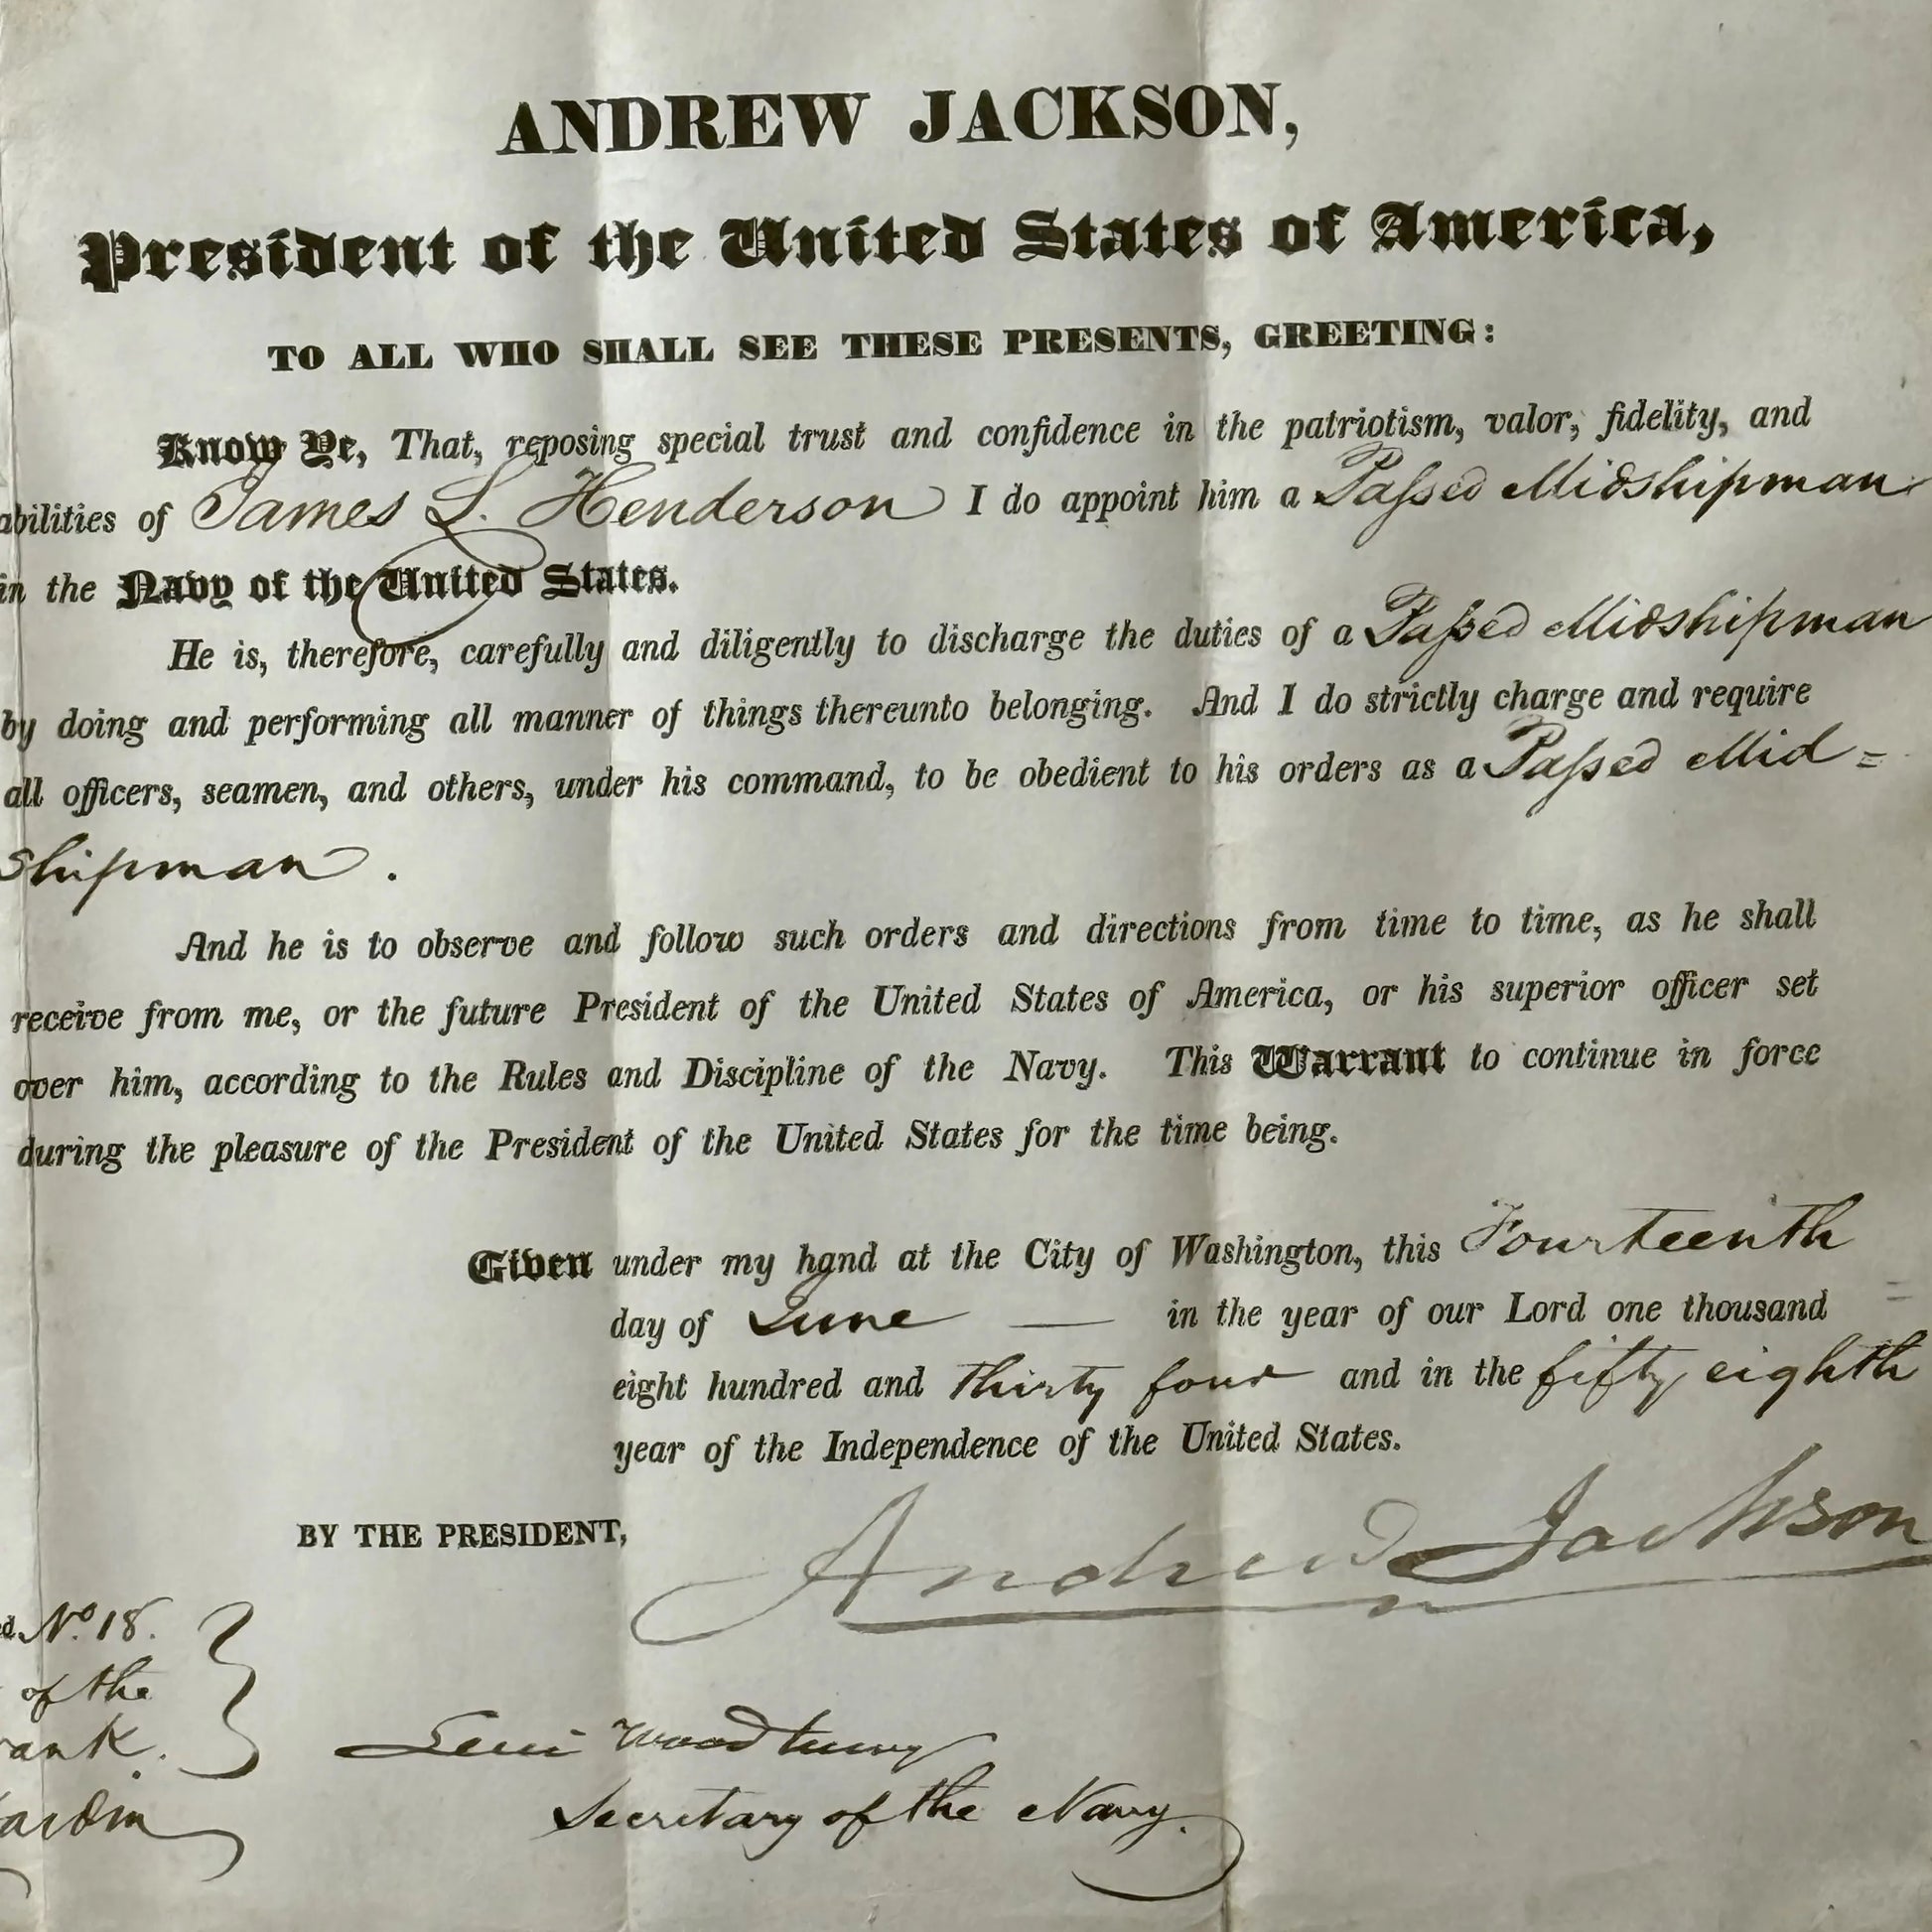 ANDREW JACKSON,
President of the United States of America,
TO ALL WHO SHALL SEE THESE PRESENTS, GREETING:
Know Ye, That, reposing special trust and confidence in the patriotism, valor, fidelity, and
abilities of James L. Henderson I do appoint him a Paſsed Midshipman
in the Navy of the United States.
He is, therefore, carefully and diligently to discharge the duties of a Paſsed Midshipman
by doing and performing all manner of things thereunto belonging. And I do strictly charge and require
all officers, seamen, and others, under his command, to be obedient to his orders as a Paſsed Mid=
shipman.
And he is to observe and follow such orders and directions from time to time, as he shall
receive from me, or the future President of the United States of America, or his superior officer set
over him, according to the Rules and Discipline of the Navy. This Warrant to continue in force
during the pleasure of the President of the United States for the time being.
Given under my hand at the City of Washington, this Fourteenth
day of June — in the year of our Lord one thousand
eight hundred and thirty four and in the fifty eighth
year of the Independence of the United States.
BY THE PRESIDENT,
Andrew Jackson
No 18.
of the
Levi Woodbury
Secretary of the Navy.